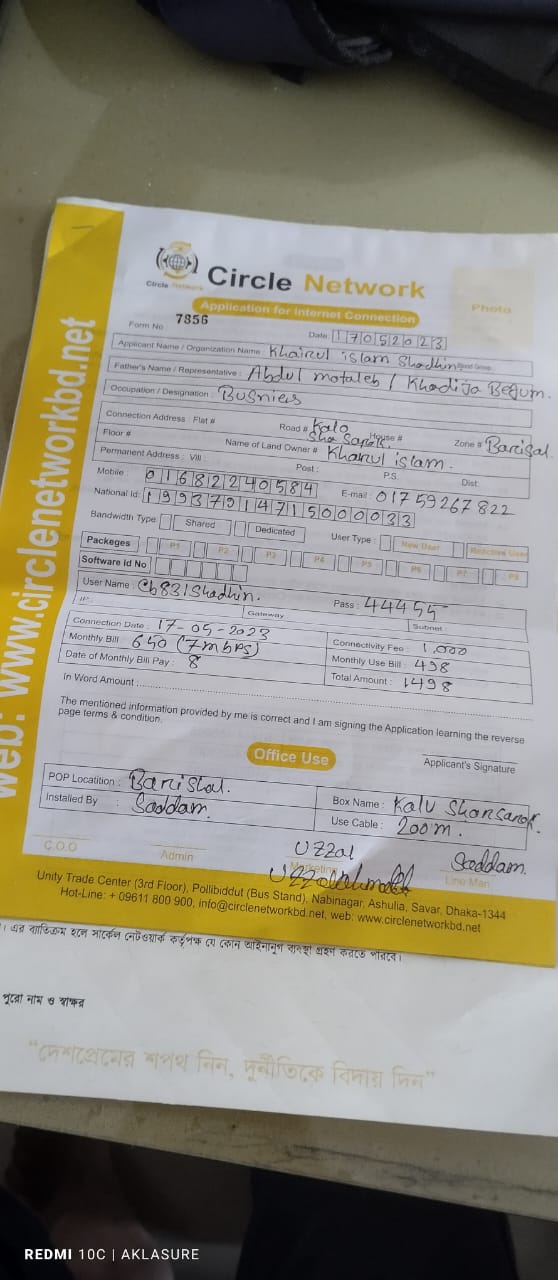 web: www.circlenetworkbd.net
Circle Network
Circle Network
Application for Internet Connection
Photo
Form No 7856
Date 17052023
Applicant Name / Organization Name : Khairul islam Shadhin Blood Group:
Father's Name / Representative : Abdul motaleb / Khadija Begum.
Occupation / Designation : Busniers
Connection Address : Flat # Road # Kalo Sha Sarak. House # Zone # Barisal
Floor # Name of Land Owner # Khairul islam.
Permanent Address : Vill : Post : P.S. Dist:
Mobile : 01682240584 E-mail : 01759267822
National Id: 19937914715000033
Bandwidth Type Shared Dedicated User Type : New User Reactive User
Packeges P1 P2 P3 P4 P5 P6 P7 P8
Software Id No
User Name : Cb831Shadhin. Pass : 44455
IP: Gateway Subnet :
Connection Date : 17-05-2023 Connectivity Fee : 1,000
Monthly Bill : 650 (7mbps) Monthly Use Bill : 498
Date of Monthly Bill Pay : 8 Total Amount : 1498
In Word Amount :
The mentioned information provided by me is correct and I am signing the Application learning the reverse
page terms & condition.
Applicant's Signature
Office Use
POP Locatition : Barishal. Box Name : Kalu Shar Sarak.
Installed By : Saddam. Use Cable : 200m.
Uzzal Saddam.
C.O.O Admin Marketing Line Man
Unity Trade Center (3rd Floor), Pollibiddut (Bus Stand), Nabinagar, Ashulia, Savar, Dhaka-1344
Hot-Line: + 09611 800 900, info@circlenetworkbd.net, web: www.circlenetworkbd.net
। এর ব্যতিক্রম হলে সার্কেল নেটওয়ার্ক কর্তৃপক্ষ যে কোন আইনানুগ ব্যবস্থা গ্রহণ করতে পারবে।
পুরো নাম ও স্বাক্ষর
"দেশপ্রেমের শপথ নিন, দুর্নীতিকে বিদায় দিন"
REDMI 10C | AKLASURE